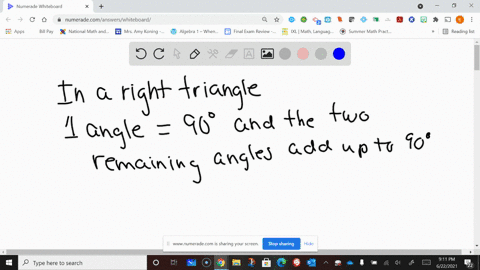 Numerade Whiteboard
numerade.com/answers/whiteboard/
Apps
Bill Pay
National Math and...
Mrs. Amy Koning -...
Algebra 1 – When...
Final Exam Review -...
IXL | Math, Languag...
Summer Math Pract...
Reading list
In a right triangle
1 angle = 90° and the two
remaining angles add up to 90°
www.numerade.com is sharing your screen.
Stop sharing
Hide
Type here to search
9:11 PM
6/22/2021